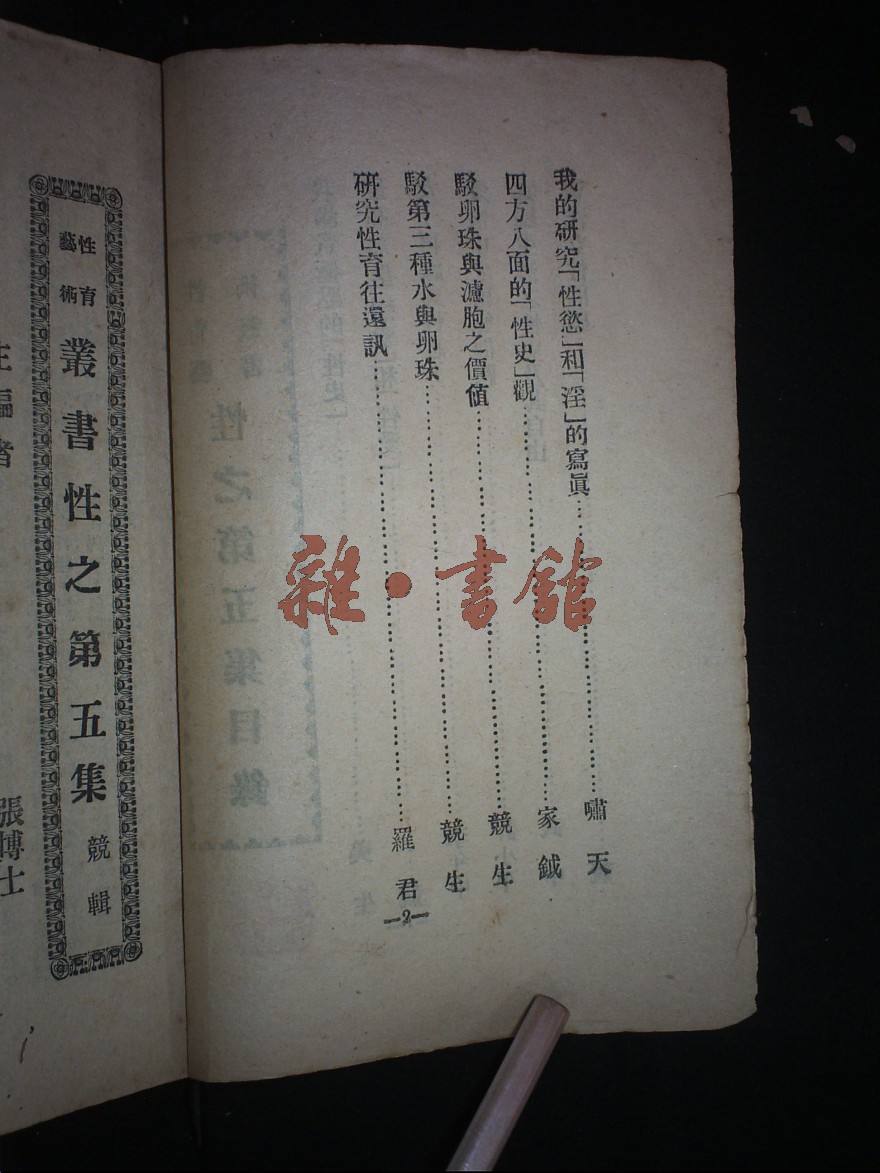 我的研究「性慾」和「淫」的寫眞……嘯天
四方八面的「性史」觀……家鉞
駁卵珠與濾胞之價値……競生
駁第三種水與卵珠……競生
研究性育往還訊……羅君
—2—
性育藝術
叢書性之第五集
競輯
主編者
張博士
雜·書館